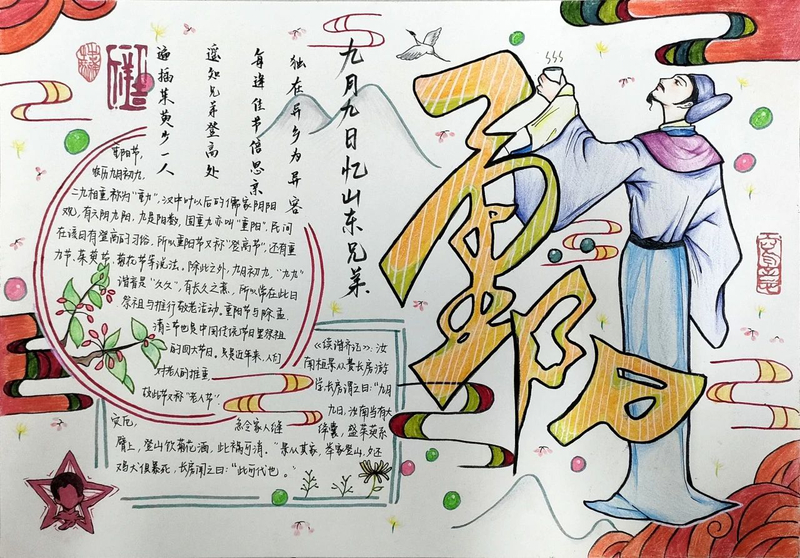 重阳
九月九日忆山东兄弟
独在异乡为异客
每逢佳节倍思亲
遥知兄弟登高处
遍插茱萸少一人
重阳节,
农历九月初九,
二九相重,称为"重九",汉中叶以后的儒家阴阳
观,有六阴九阳,九是阳数,固重九亦叫"重阳",民间
在该日有登高的习俗,所以重阳节又称"登高节",还有重
九节、茱萸节、菊花节等说法。除此之外,九月初九,"九九"
谐音是"久久",有长久之意,所以常在此日
祭祖与推行敬老活动。重阳节与除、盂、
清三节也是中国传统节日里祭祖
的四大节日,只是近年来,人们
对老人的推重
故此节又称"老人节"
《续谐齐记》:汝
南桓景从费长房游
学,长房谓之曰:"九月
九日,汝南当有大
灾厄,急令家人缝
绛囊,盛茱萸系
臂上,登山饮菊花酒,此祸可消。"景从其家,举家登山,夕还
鸡犬俱暴死,长房闻之曰:"此可代也。"